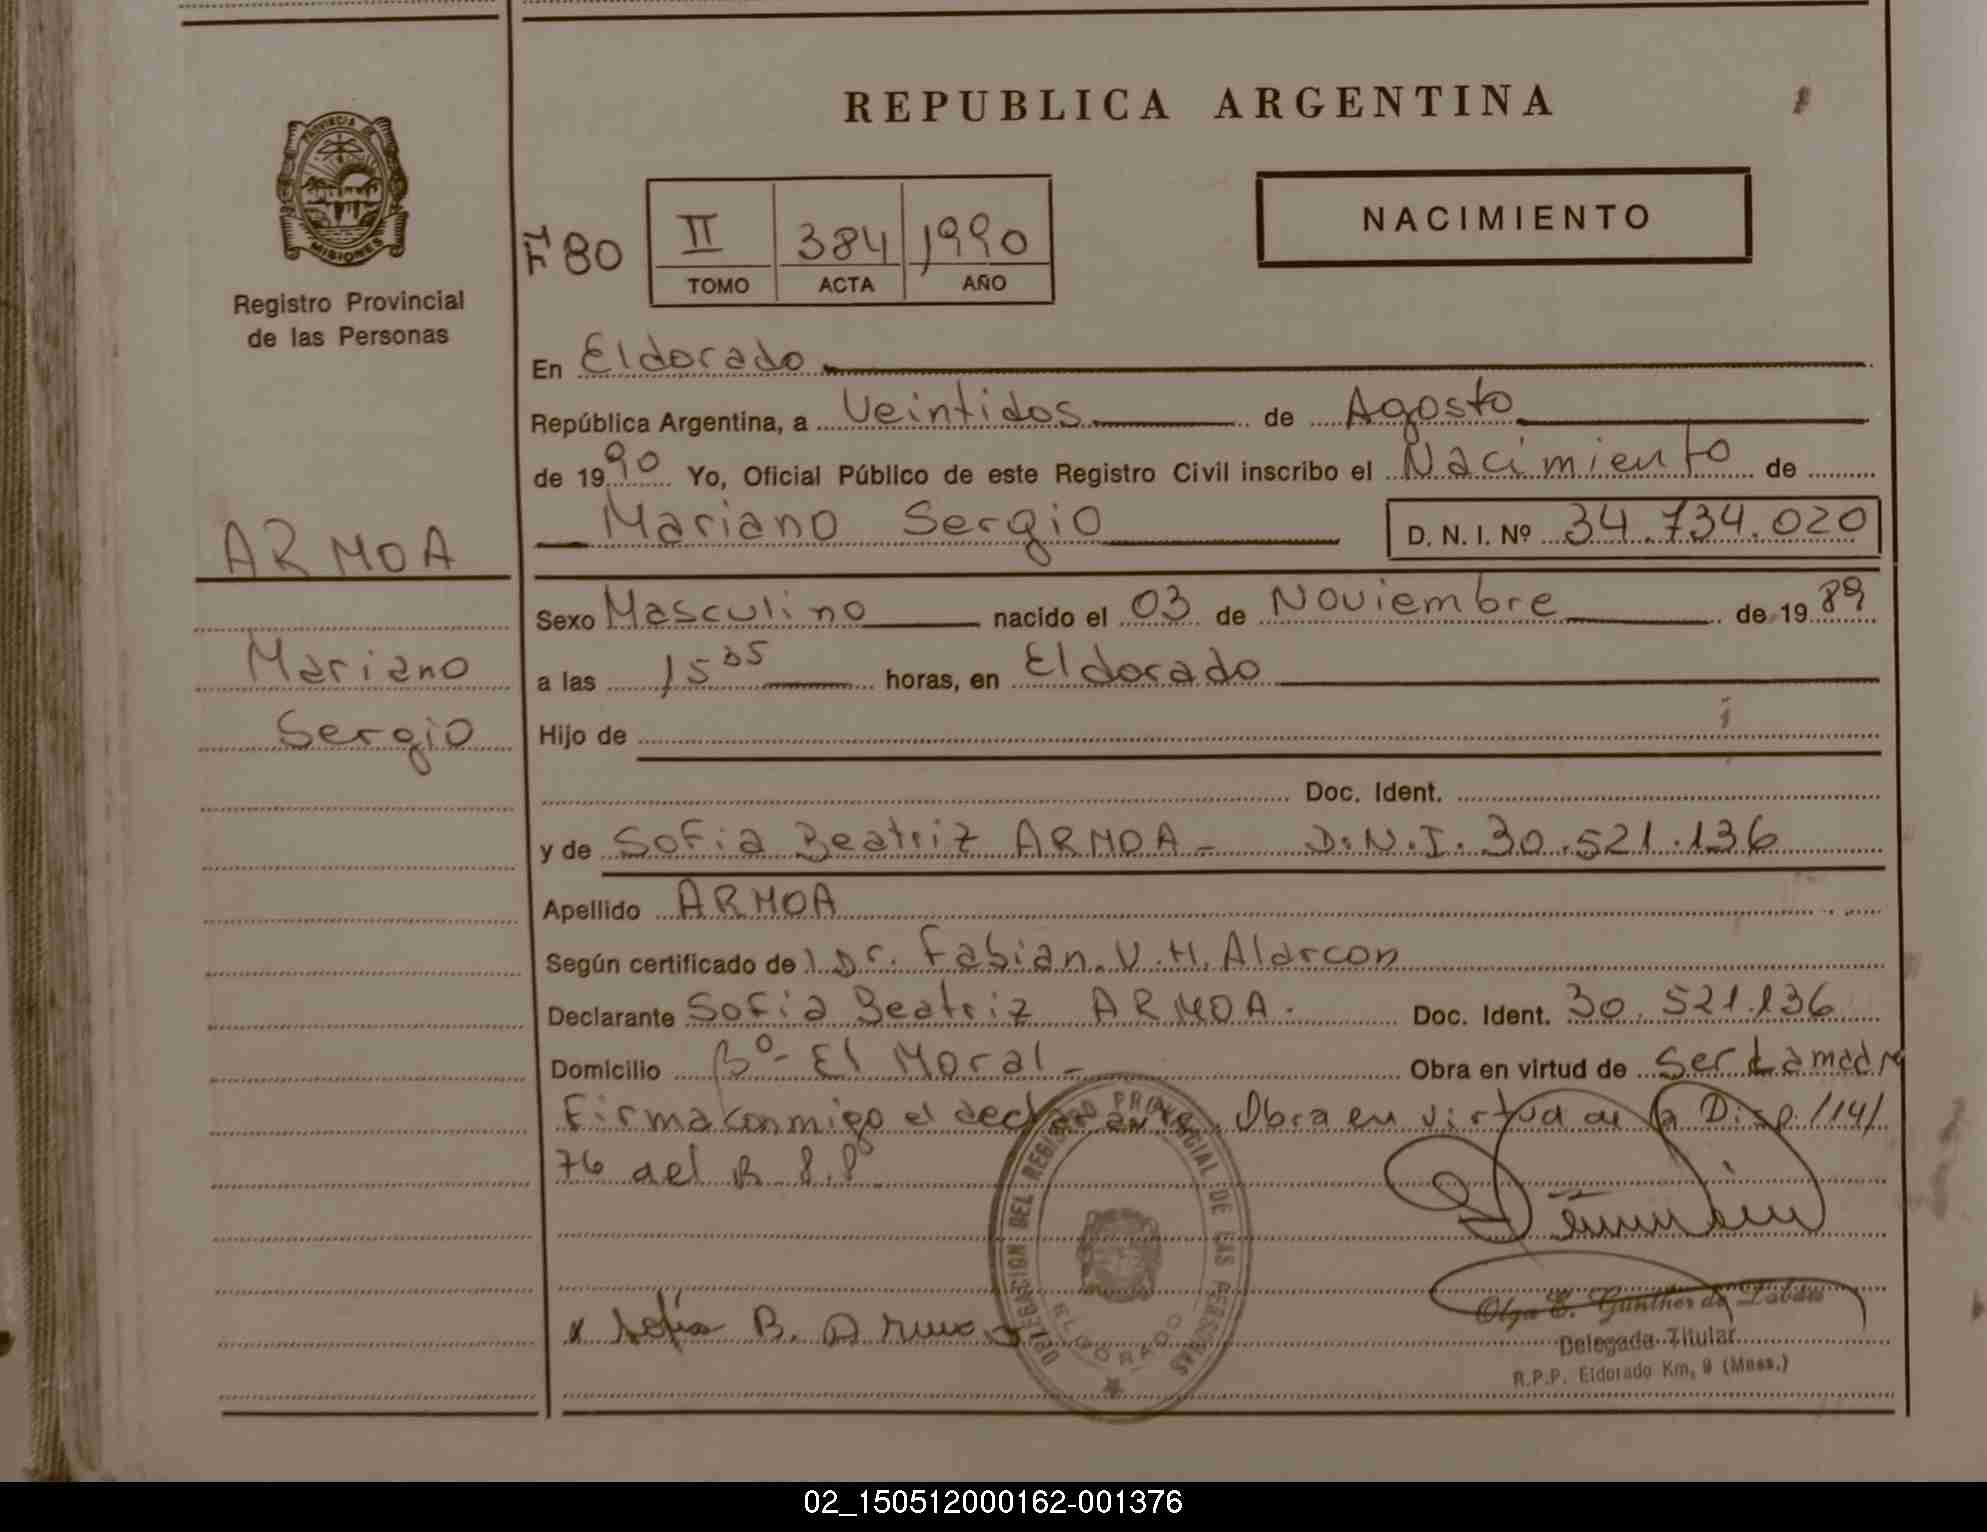 REPUBLICA ARGENTINA
PROVINCIA DE
MISIONES
Registro Provincial
de las Personas
F 80
II 384 1990
TOMO ACTA AÑO
NACIMIENTO
En Eldorado
República Argentina, a Veintidos de Agosto
de 1990 Yo, Oficial Público de este Registro Civil inscribo el Nacimiento de
Mariano Sergio D. N. I. Nº 34.734.020
ARMOA
Mariano
Sergio
Sexo Masculino nacido el 03 de Noviembre de 1989
a las 15 35 horas, en Eldorado
Hijo de
Doc. Ident.
y de Sofia Beatriz ARMOA - D.N.I. 30.521.136
Apellido ARMOA
Según certificado de Dr. Fabian V. H. Alarcon
Declarante Sofia Beatriz ARMOA. Doc. Ident. 30.521.136
Domicilio Bº- El Moral - Obra en virtud de Ser La madre
Firma conmigo el declarante. Obra en virtud de la Disp. 114/
76 del R.P.P.
DELEGACION DEL REGISTRO PROVINCIAL DE LAS PERSONAS
ELDORADO
x Sofia B. Armoa
Olga E. Gunther de
Delegada Titular
R.P.P. Eldorado Km, 9 (Mnes.)
02_150512000162-001376